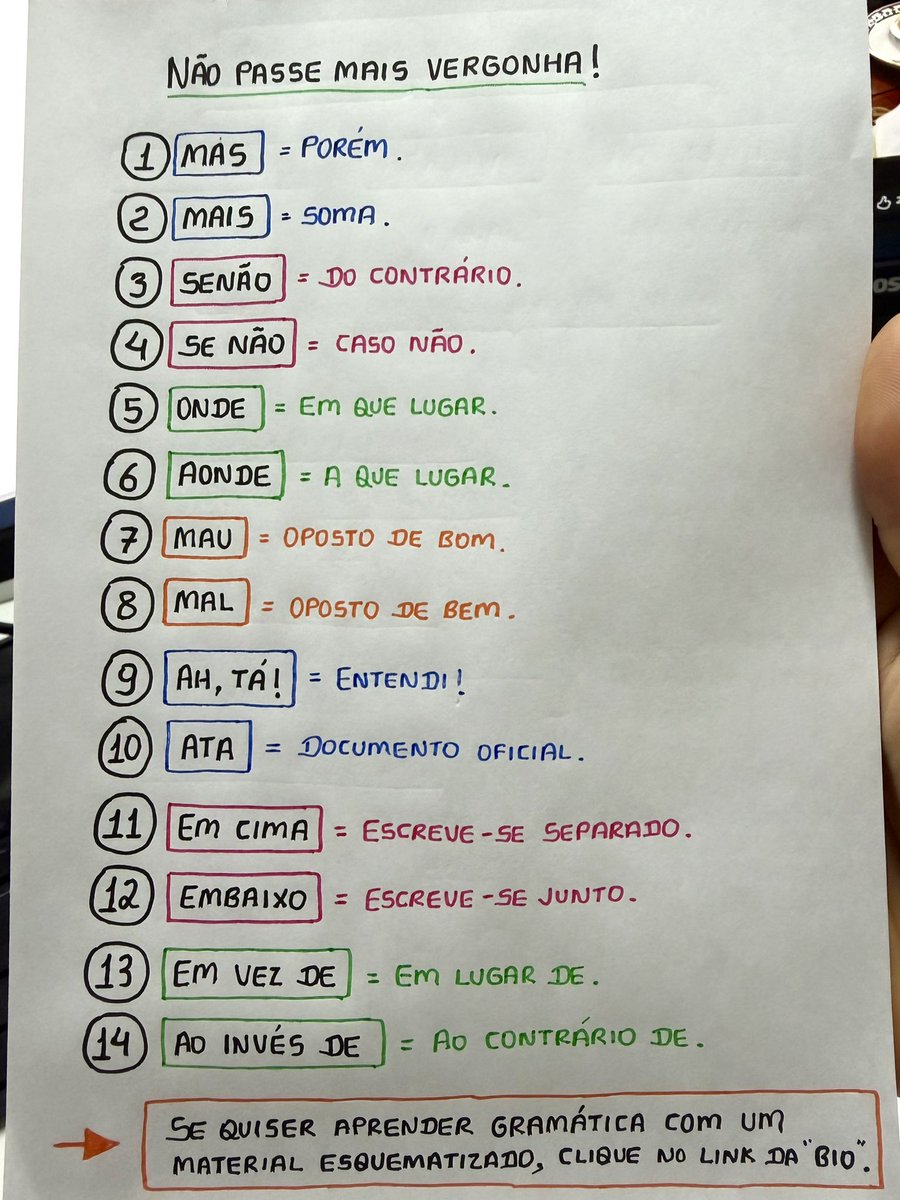 NÃO PASSE MAIS VERGONHA!
1 MAS = PORÉM.
2 MAIS = SOMA.
3 SENÃO = DO CONTRÁRIO.
4 SE NÃO = CASO NÃO.
5 ONDE = EM QUE LUGAR.
6 AONDE = A QUE LUGAR.
7 MAU = OPOSTO DE BOM.
8 MAL = OPOSTO DE BEM.
9 AH, TÁ! = ENTENDI!
10 ATA = DOCUMENTO OFICIAL.
11 EM CIMA = ESCREVE-SE SEPARADO.
12 EMBAIXO = ESCREVE-SE JUNTO.
13 EM VEZ DE = EM LUGAR DE.
14 AO INVÉS DE = AO CONTRÁRIO DE.
→ SE QUISER APRENDER GRAMÁTICA COM UM
MATERIAL ESQUEMATIZADO, CLIQUE NO LINK DA "BIO".